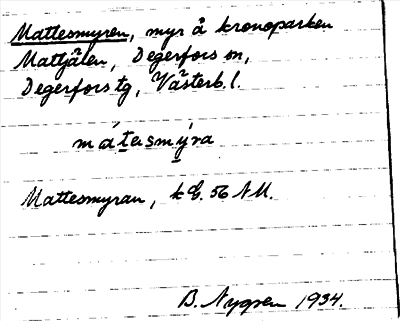 Mattesmyren, myr å kronoparken
Mattjälen, Degerfors sn,
Degerfors tg, Västerb. l.
mátesmýra
Mattesmyran, k E. 56 NM.
B. Nygren 1934.